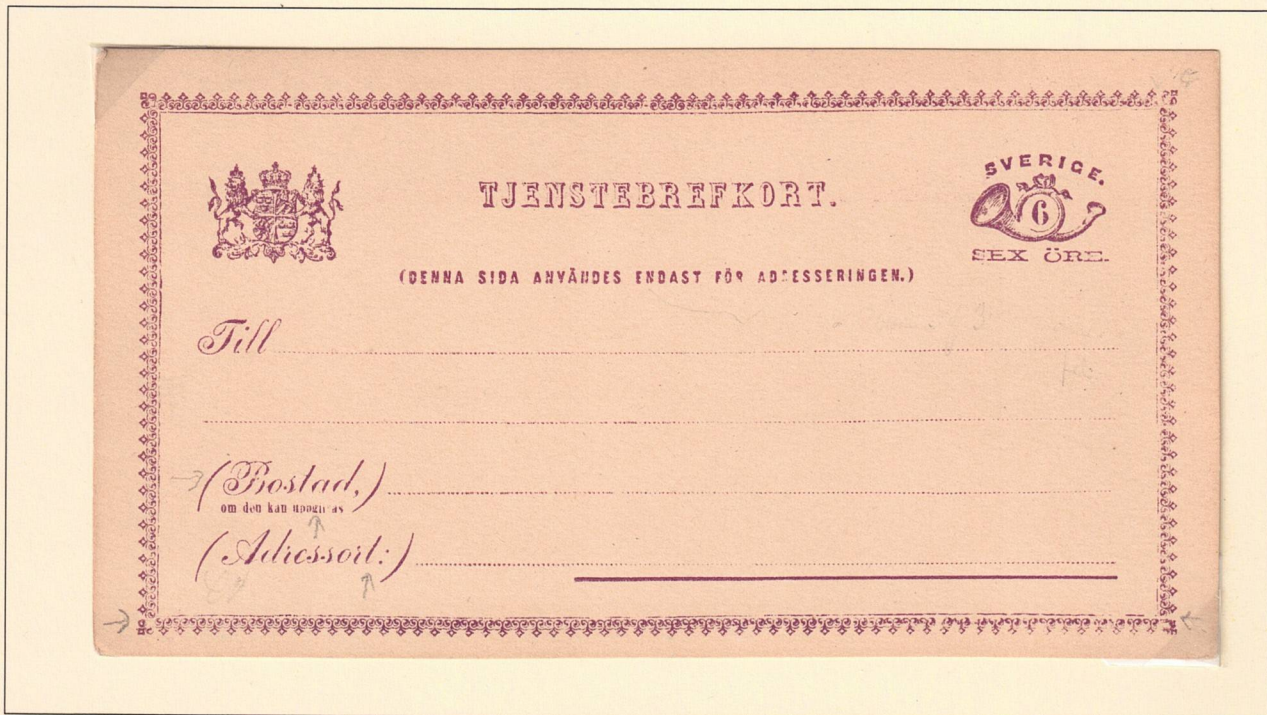 TJENSTEBREFKORT.
SVERIGE.
6
SEX ÖRE.
(DENNA SIDA ANVÄNDES ENDAST FÖR ADRESSERINGEN.)
Till
(Bostad,)
om den kan uppgifvas
(Adressort:)